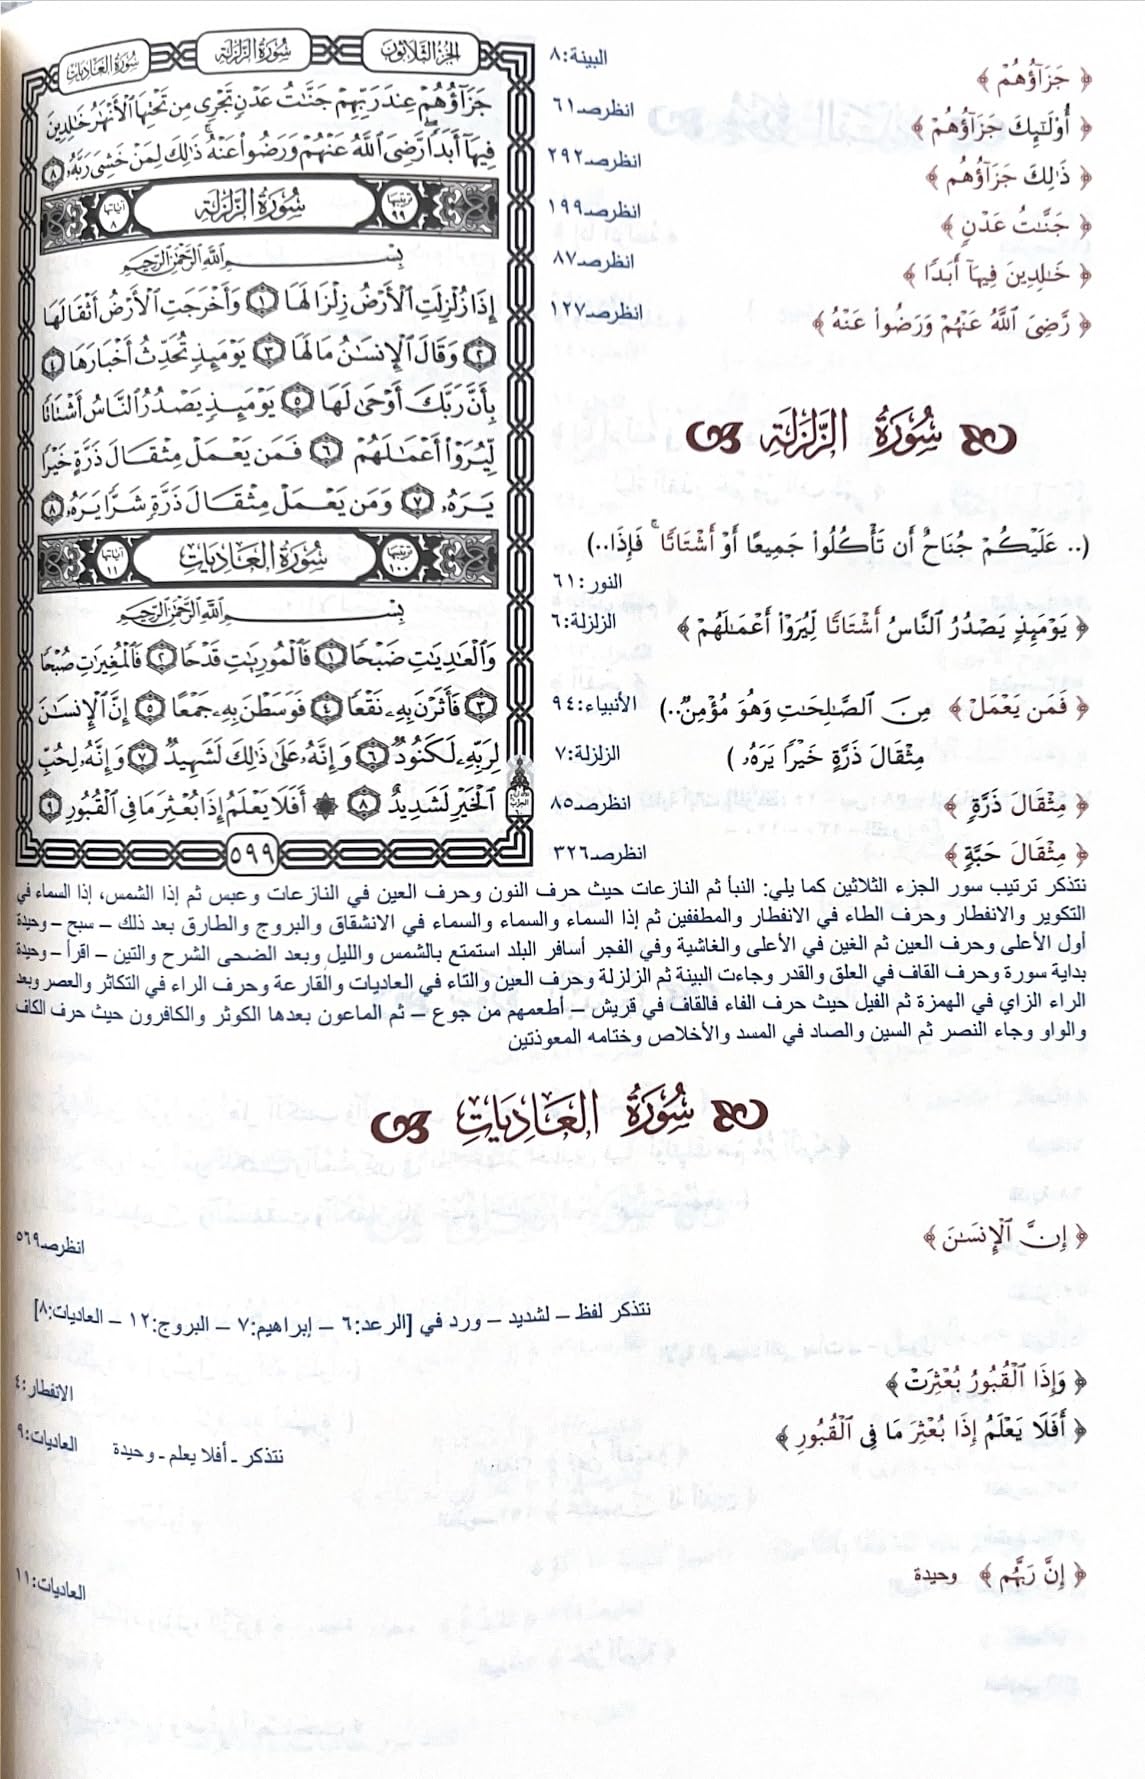 الجزء الثلاثون
سورة الزلزلة
سورة العاديات
جَزَآؤُهُمْ عِندَ رَبِّهِمْ جَنَّـٰتُ عَدْنٍ تَجْرِى مِن تَحْتِهَا ٱلْأَنْهَـٰرُ خَـٰلِدِينَ
فِيهَآ أَبَدًا ۖ رَّضِىَ ٱللَّهُ عَنْهُمْ وَرَضُوا۟ عَنْهُ ۚ ذَٰلِكَ لِمَنْ خَشِىَ رَبَّهُۥ ٨
ترتيبها ٩٩
سُورَةُ الزَّلزَلة
آياتها ٨
بِسْمِ ٱللَّهِ ٱلرَّحْمَـٰنِ ٱلرَّحِيمِ
إِذَا زُلْزِلَتِ ٱلْأَرْضُ زِلْزَالَهَا ١ وَأَخْرَجَتِ ٱلْأَرْضُ أَثْقَالَهَا
٢ وَقَالَ ٱلْإِنسَـٰنُ مَا لَهَا ٣ يَوْمَئِذٍ تُحَدِّثُ أَخْبَارَهَا ٤
بِأَنَّ رَبَّكَ أَوْحَىٰ لَهَا ٥ يَوْمَئِذٍ يَصْدُرُ ٱلنَّاسُ أَشْتَاتًا
لِّيُرَوْا۟ أَعْمَـٰلَهُمْ ٦ فَمَن يَعْمَلْ مِثْقَالَ ذَرَّةٍ خَيْرًا
يَرَهُۥ ٧ وَمَن يَعْمَلْ مِثْقَالَ ذَرَّةٍ شَرًّا يَرَهُۥ ٨
ترتيبها ١٠٠
سُورَةُ العَادِيَاتِ
آياتها ١١
بِسْمِ ٱللَّهِ ٱلرَّحْمَـٰنِ ٱلرَّحِيمِ
وَٱلْعَـٰدِيَـٰتِ ضَبْحًا ١ فَٱلْمُورِيَـٰتِ قَدْحًا ٢ فَٱلْمُغِيرَٰتِ صُبْحًا
٣ فَأَثَرْنَ بِهِۦ نَقْعًا ٤ فَوَسَطْنَ بِهِۦ جَمْعًا ٥ إِنَّ ٱلْإِنسَـٰنَ
لِرَبِّهِۦ لَكَنُودٌ ٦ وَإِنَّهُۥ عَلَىٰ ذَٰلِكَ لَشَهِيدٌ ٧ وَإِنَّهُۥ لِحُبِّ
ٱلْخَيْرِ لَشَدِيدٌ ٨ ۞ أَفَلَا يَعْلَمُ إِذَا بُعْثِرَ مَا فِى ٱلْقُبُورِ ٩
٥٩٩
﴿ جَزَآؤُهُمْ ﴾ البينة:٨
﴿ أُو۟لَـٰٓئِكَ جَزَآؤُهُمْ ﴾ انظرصـ٦١
﴿ ذَٰلِكَ جَزَآؤُهُم ﴾ انظرصـ٢٩٢
﴿ جَنَّـٰتُ عَدْنٍ ﴾ انظرصـ١٩٩
﴿ خَـٰلِدِينَ فِيهَآ أَبَدًا ﴾ انظرصـ٨٧
﴿ رَّضِىَ ٱللَّهُ عَنْهُمْ وَرَضُوا۟ عَنْهُ ﴾ انظرصـ١٢٧
سُورَةُ الزَّلزَلة
(.. عَلَيْكُمْ جُنَاحٌ أَن تَأْكُلُوا۟ جَمِيعًا أَوْ أَشْتَاتًا ۚ فَإِذَا..)
النور:٦١
﴿ يَوْمَئِذٍ يَصْدُرُ ٱلنَّاسُ أَشْتَاتًا لِّيُرَوْا۟ أَعْمَـٰلَهُمْ ﴾ الزلزلة:٦
﴿ فَمَن يَعْمَلْ ﴾ مِنَ ٱلصَّـٰلِحَـٰتِ وَهُوَ مُؤْمِنٌ..) الأنبياء:٩٤
مِثْقَالَ ذَرَّةٍ خَيْرًا يَرَهُۥ ) الزلزلة:٧
﴿ مِثْقَالَ ذَرَّةٍ ﴾ انظرصـ٨٥
﴿ مِثْقَالَ حَبَّةٍ ﴾ انظرصـ٣٢٦
نتذكر ترتيب سور الجزء الثلاثين كما يلي: النبأ ثم النازعات حيث حرف النون وحرف العين في النازعات وعبس ثم إذا الشمس، إذا السماء في
التكوير والانفطار وحرف الطاء في الانفطار والمطففين ثم إذا السماء والسماء والسماء في الانشقاق والبروج والطارق بعد ذلك – سبح – وحيدة
أول الأعلى وحرف العين ثم الغين في الأعلى والغاشية وفي الفجر أسافر البلد استمتع بالشمس والليل وبعد الضحى الشرح والتين – اقرأ – وحيدة
بداية سورة وحرف القاف في العلق والقدر وجاءت البينة ثم الزلزلة وحرف العين والتاء في العاديات والقارعة وحرف الراء في التكاثر والعصر وبعد
الراء الزاي في الهمزة ثم الفيل حيث حرف الفاء فالقاف في قريش – أطعمهم من جوع – ثم الماعون بعدها الكوثر والكافرون حيث حرف الكاف
والواو وجاء النصر ثم السين والصاد في المسد والأخلاص وختامه المعوذتين
سُورَةُ العَادِيَاتِ
﴿ إِنَّ ٱلْإِنسَـٰنَ ﴾ انظرصـ٥٦٩
نتذكر لفظ – لشديد – ورد في [الرعد:٦ – إبراهيم:٧ – البروج:١٢ – العاديات:٨]
﴿ وَإِذَا ٱلْقُبُورُ بُعْثِرَتْ ﴾ الانفطار:٤
﴿ أَفَلَا يَعْلَمُ إِذَا بُعْثِرَ مَا فِى ٱلْقُبُورِ ﴾ نتذكر ـ أفلا يعلم ـ وحيدة العاديات:٩
﴿ إِنَّ رَبَّهُم ﴾ وحيدة العاديات:١١